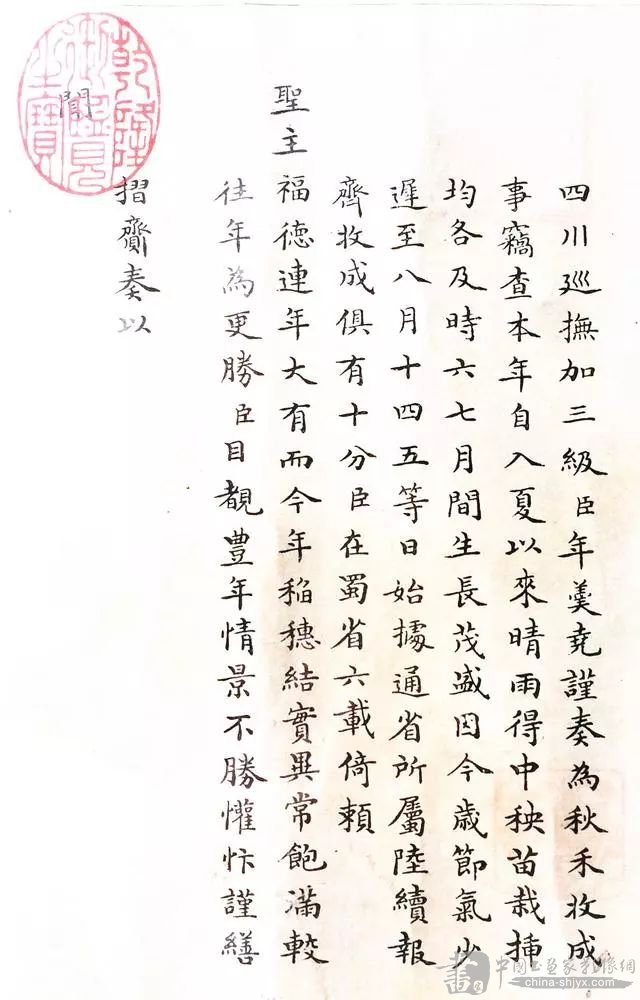 四川巡撫加三級臣年羹堯謹奏為秋禾收成
事竊查本年自入夏以來晴雨得中秧苗栽插
均各及時六七月間生長茂盛因今歲節氣少
遲至八月十四五等日始據通省所屬陸續報
齊收成俱有十分臣在蜀省六載倚賴
聖主福德連年大有而今年稻穗結實異常飽滿較
往年為更勝臣目覩豊年情景不勝懽忭謹繕
摺齎奏以
聞
乾隆
御覽
之寶
中國書画家影像網
china-shjyx.com